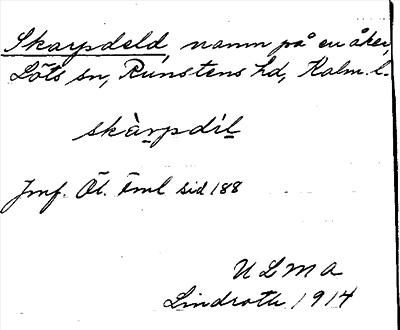 Skarpdeld, namn på en åker,
Löts sn, Runstens hd, Kalm. l.
skàrpdìl
Jmf. Öl. Fml sid 188
ULMA
Lindroth 1914